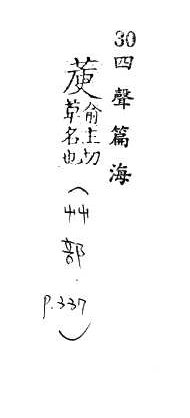 30四聲篇海
萸俞主切草名也（艸部．P.337）